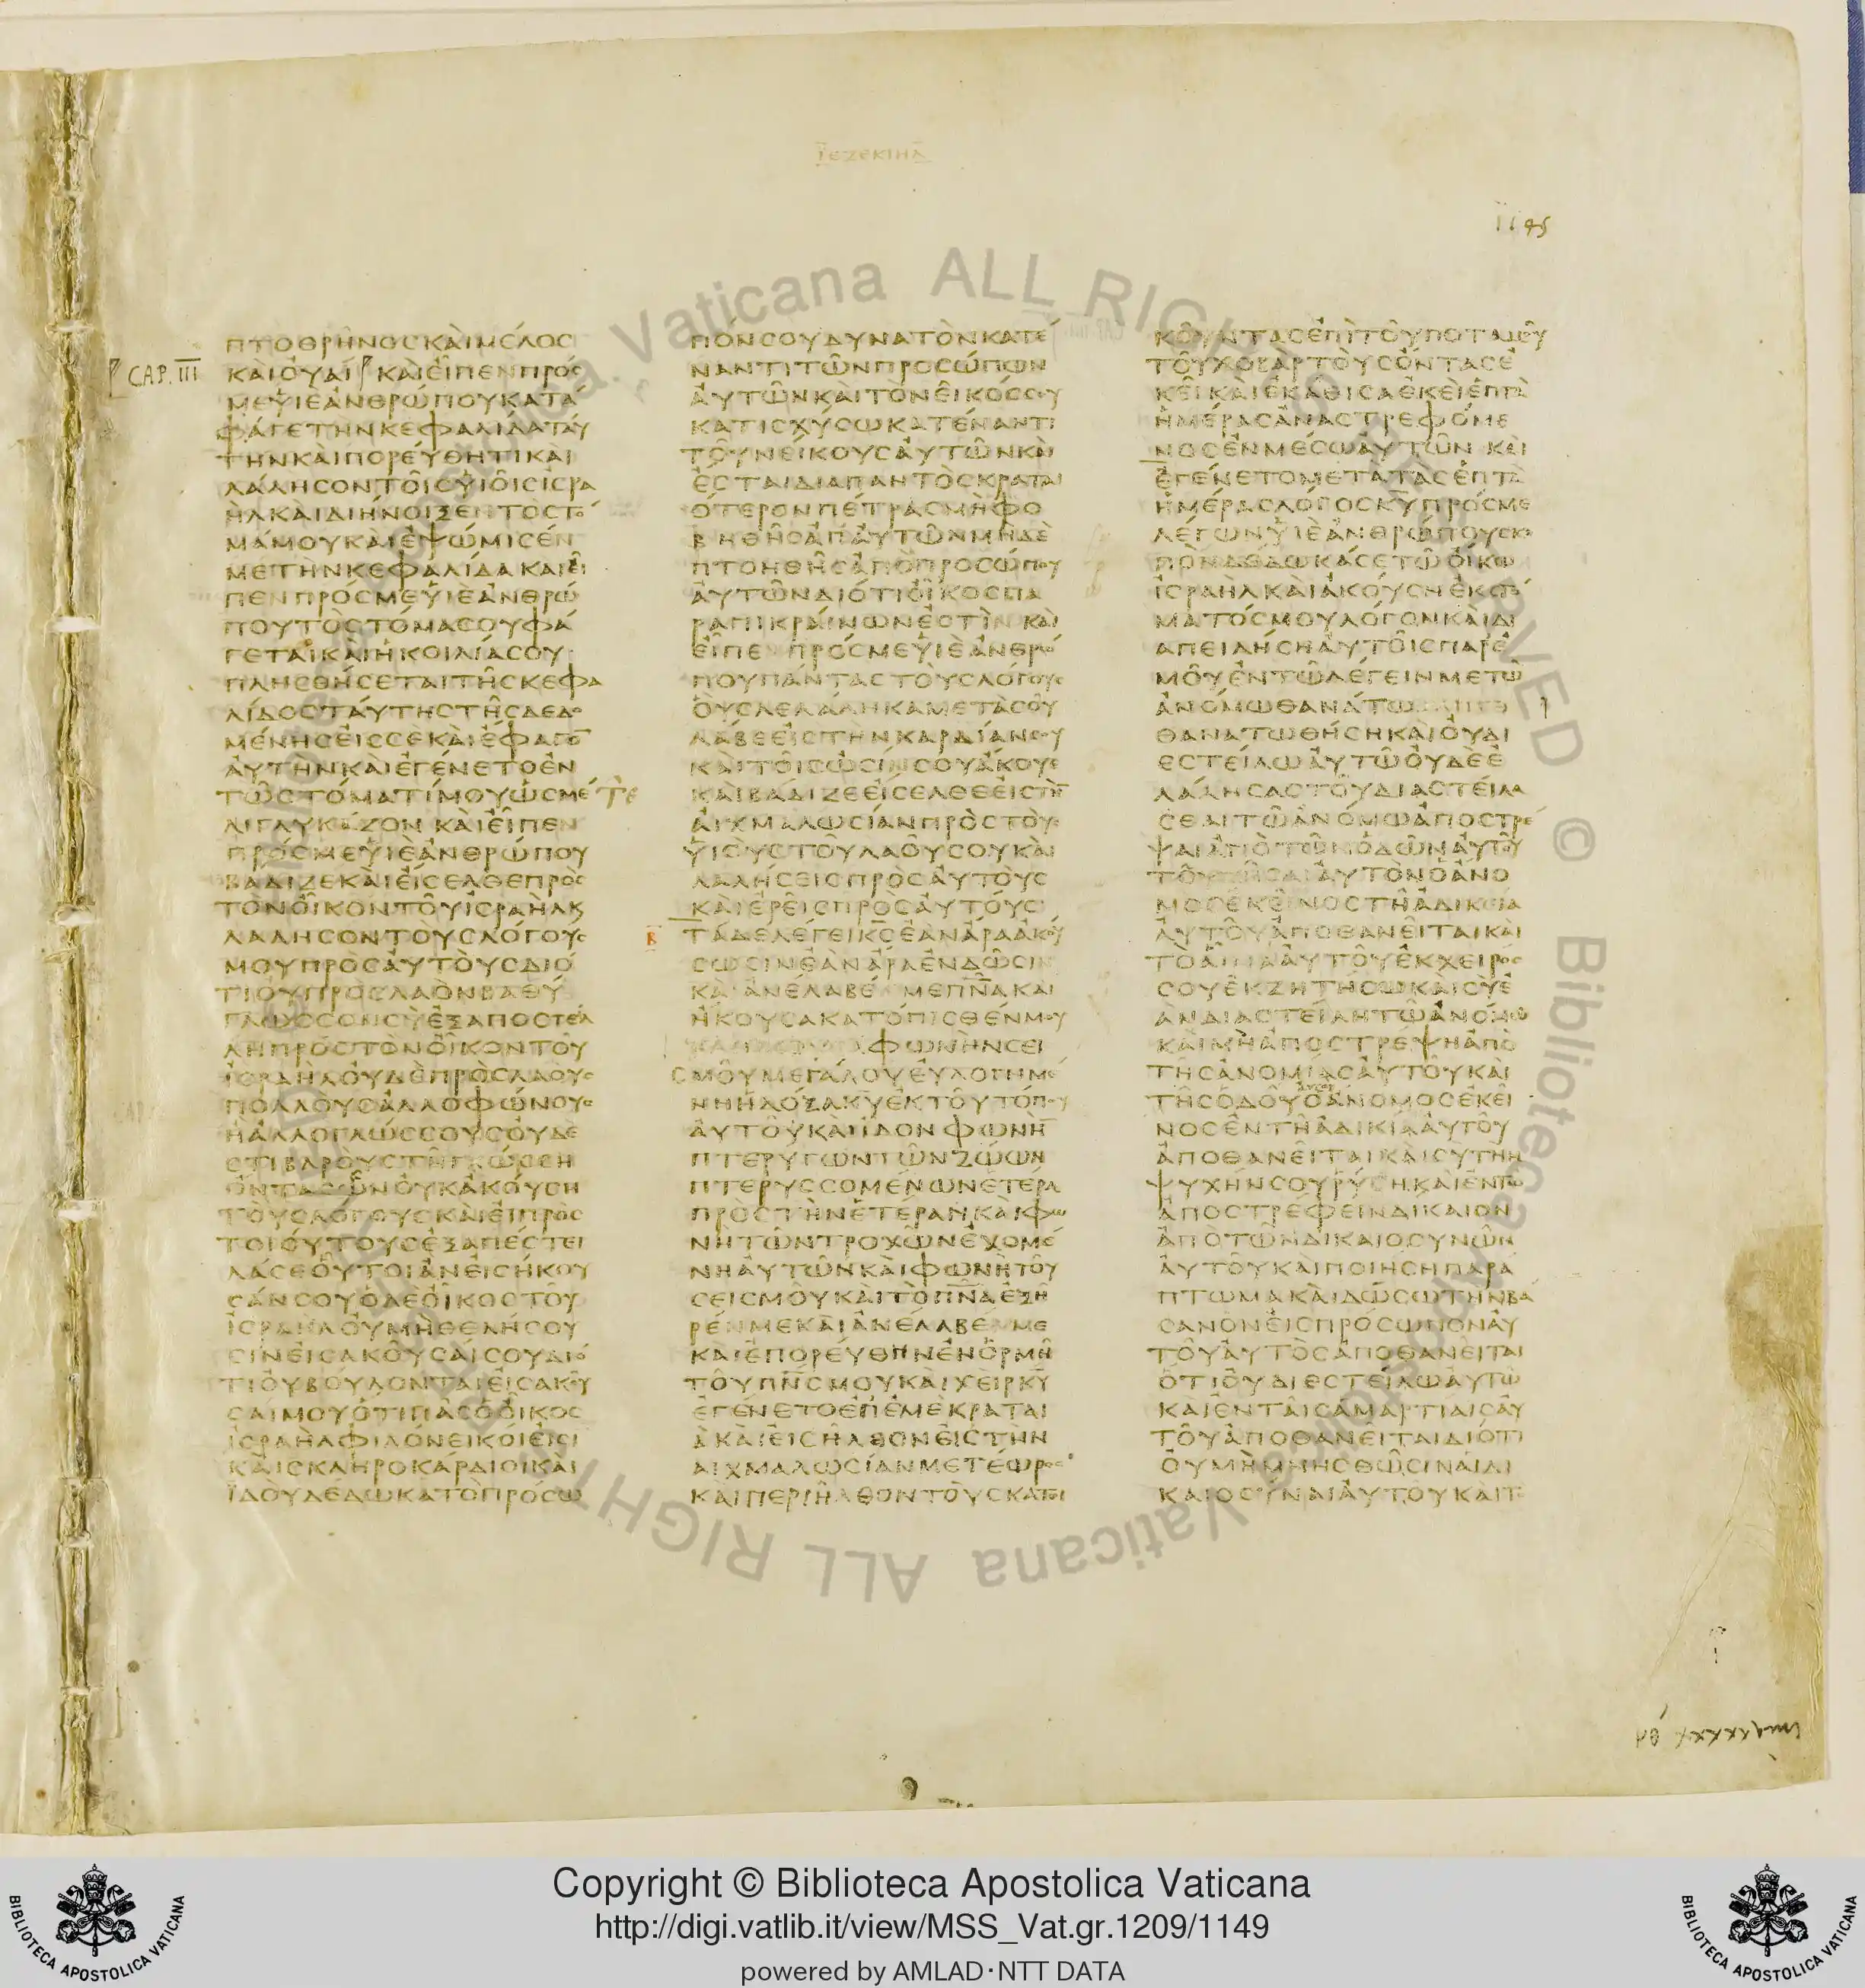 ΙΕΖΕΚΙΗΛ
1145
CAP. III
ΠΤΟΘΡΗΝΟΣΚΑΙΜΕΛΟΣ
ΚΑΙΟΥΑΙ ΚΑΙΕΙΠΕΝΠΡΟΣ
ΜΕΥΙΕΑΝΘΡΩΠΟΥΚΑΤΑ
ΦΑΓΕΤΗΝΚΕΦΑΛΙΔΑΤΑΥ
ΤΗΝΚΑΙΠΟΡΕΥΘΗΤΙΚΑΙ
ΛΑΛΗΣΟΝΤΟΙΣΥΙΟΙΣΙΣΡΑ
ΗΛΚΑΙΔΙΗΝΟΙΞΕΝΤΟΣΤΟ
ΜΑΜΟΥΚΑΙΕΨΩΜΙΣΕΝ
ΜΕΤΗΝΚΕΦΑΛΙΔΑΚΑΙΕΙ
ΠΕΝΠΡΟΣΜΕΥΙΕΑΝΘΡΩ
ΠΟΥΤΟΣΤΟΜΑΣΟΥΦΑ
ΓΕΤΑΙΚΑΙΗΚΟΙΛΙΑΣΟΥ
ΠΛΗΣΘΗΣΕΤΑΙΤΗΣΚΕΦΑ
ΛΙΔΟΣΤΑΥΤΗΣΤΗΣΔΕΔΟ
ΜΕΝΗΣΕΙΣΣΕΚΑΙΕΦΑΓΟ̅
ΑΥΤΗΝΚΑΙΕΓΕΝΕΤΟΕΝ
ΤΩΣΤΟΜΑΤΙΜΟΥΩΣΜΕ
ΛΙΓΛΥΚΑΖΟΝΚΑΙΕΙΠΕΝ
ΠΡΟΣΜΕΥΙΕΑΝΘΡΩΠΟΥ
ΒΑΔΙΖΕΚΑΙΕΙΣΕΛΘΕΠΡΟΣ
ΤΟΝΟΙΚΟΝΤΟΥΙΣΡΑΗΛΚ
ΛΑΛΗΣΟΝΤΟΥΣΛΟΓΟΥΣ
ΜΟΥΠΡΟΣΑΥΤΟΥΣΔΙΟ
ΤΙΟΥΠΡΟΣΛΑΟΝΒΑΘΥ
ΓΛΩΣΣΟΝΣΥΕΞΑΠΟΣΤΕΛ
ΛΗΠΡΟΣΤΟΝΟΙΚΟΝΤΟΥ
ΙΣΡΑΗΛΟΥΔΕΠΡΟΣΛΑΟΥΣ
ΠΟΛΛΟΥΣΑΛΛΟΦΩΝΟΥΣ
ΗΑΛΛΟΓΛΩΣΣΟΥΣΟΥΔΕ
ΣΤΙΒΑΡΟΥΣΤΗΓΛΩΣΣΗ
ΟΝΤΑΣΩΝΟΥΚΑΚΟΥΣΗ
ΤΟΥΣΛΟΓΟΥΣΚΑΙΕΙΠΡΟΣ
ΤΟΙΟΥΤΟΥΣΕΞΑΠΕΣΤΕΙ
ΛΑΣΕΟΥΤΟΙΑΝΕΙΣΗΚΟΥ
ΣΑΝΣΟΥΟΔΕΟΙΚΟΣΤΟΥ
ΙΣΡΑΗΛΟΥΜΗΘΕΛΗΣΟΥ
ΣΙΝΕΙΣΑΚΟΥΣΑΙΣΟΥΔΙΟ
ΤΙΟΥΒΟΥΛΟΝΤΑΙΕΙΣΑΚΟΥ
ΣΑΙΜΟΥΟΤΙΠΑΣΟΟΙΚΟΣ
ΙΣΡΑΗΛΦΙΛΟΝΕΙΚΟΙΕΙΣΙ
ΚΑΙΣΚΛΗΡΟΚΑΡΔΙΟΙΚΑΙ
ΙΔΟΥΔΕΔΩΚΑΤΟΠΡΟΣΩ
ΠΟΝΣΟΥΔΥΝΑΤΟΝΚΑΤΕ
ΝΑΝΤΙΤΩΝΠΡΟΣΩΠΩΝ
ΑΥΤΩΝΚΑΙΤΟΝΕΙΚΟΣΣΟΥ
ΚΑΤΙΣΧΥΣΩΚΑΤΕΝΑΝΤΙ
ΤΟΥΝΕΙΚΟΥΣΑΥΤΩΝΚΑΙ
ΕΣΤΑΙΔΙΑΠΑΝΤΟΣΚΡΑΤΑΙ
ΟΤΕΡΟΝΠΕΤΡΑΣΜΗΦΟ
ΒΗΘΗΣΑΠΑΥΤΩΝΜΗΔΕ
ΠΤΟΗΘΗΣΑΠΟΠΡΟΣΩΠΟΥ
ΑΥΤΩΝΔΙΟΤΙΟΙΚΟΣΠΑ
ΡΑΠΙΚΡΑΙΝΩΝΕΣΤΙΝΚΑΙ
ΕΙΠΕΝΠΡΟΣΜΕΥΙΕΑΝΘΡΩ
ΠΟΥΠΑΝΤΑΣΤΟΥΣΛΟΓΟΥΣ
ΟΥΣΛΕΛΑΛΗΚΑΜΕΤΑΣΟΥ
ΛΑΒΕΕΙΣΤΗΝΚΑΡΔΙΑΝΣΟΥ
ΚΑΙΤΟΙΣΩΣΙΝΣΟΥΑΚΟΥΕ
ΚΑΙΒΑΔΙΖΕΕΙΣΕΛΘΕΕΙΣΤΗ̅
ΑΙΧΜΑΛΩΣΙΑΝΠΡΟΣΤΟΥΣ
ΥΙΟΥΣΤΟΥΛΑΟΥΣΟΥΚΑΙ
ΛΑΛΗΣΕΙΣΠΡΟΣΑΥΤΟΥΣ
ΚΑΙΕΡΕΙΣΠΡΟΣΑΥΤΟΥΣ
Β ΤΑΔΕΛΕΓΕΙΚ̅Σ̅ΕΑΝΑΡΑΑΚΟΥ
ΣΩΣΙΝΕΑΝΑΡΑΕΝΔΩΣΙΝ
ΚΑΙΑΝΕΛΑΒΕΝΜΕΠ̅Ν̅Α̅ΚΑΙ
ΗΚΟΥΣΑΚΑΤΟΠΙΣΘΕΝΜΟΥ
ΦΩΝΗΝΣΕΙ
ΣΜΟΥΜΕΓΑΛΟΥΕΥΛΟΓΗΜΕ
ΝΗΗΔΟΞΑΚ̅Υ̅ΕΚΤΟΥΤΟΠΟΥ
ΑΥΤΟΥΚΑΙΙΔΟΝΦΩΝΗ̅
ΠΤΕΡΥΓΩΝΤΩΝΖΩΩΝ
ΠΤΕΡΥΣΣΟΜΕΝΩΝΕΤΕΡΑ
ΠΡΟΣΤΗΝΕΤΕΡΑΝΚΑΙΦΩ
ΝΗΤΩΝΤΡΟΧΩΝΕΧΟΜΕ
ΝΗΑΥΤΩΝΚΑΙΦΩΝΗΤΟΥ
ΣΕΙΣΜΟΥΚΑΙΤΟΠ̅Ν̅Α̅ΕΞΗ
ΡΕΝΜΕΚΑΙΑΝΕΛΑΒΕΝΜΕ
ΚΑΙΕΠΟΡΕΥΘΗΝΕΝΟΡΜΗ
ΤΟΥΠ̅Ν̅Σ̅ΜΟΥΚΑΙΧΕΙΡΚ̅Υ̅
ΕΓΕΝΕΤΟΕΠΕΜΕΚΡΑΤΑΙ
ΑΚΑΙΕΙΣΗΛΘΟΝΕΙΣΤΗΝ
ΑΙΧΜΑΛΩΣΙΑΝΜΕΤΕΩΡΟΣ
ΚΑΙΠΕΡΙΗΛΘΟΝΤΟΥΣΚΑΤΟΙ
ΚΟΥΝΤΑΣΕΠΙΤΟΥΠΟΤΑΜΟΥ
ΤΟΥΧΟΒΑΡΤΟΥΣΟΝΤΑΣΕ
ΚΕΙΚΑΙΕΚΑΘΙΣΑΕΚΕΙΕΠΤΑ
ΗΜΕΡΑΣΑΝΑΣΤΡΕΦΟΜΕ
ΝΟΣΕΝΜΕΣΩΑΥΤΩΝΚΑΙ
ΕΓΕΝΕΤΟΜΕΤΑΤΑΣΕΠΤΑ
ΗΜΕΡΑΣΛΟΓΟΣΚ̅Υ̅ΠΡΟΣΜΕ
ΛΕΓΩΝΥΙΕΑΝΘΡΩΠΟΥΣΚΟ
ΠΟΝΔΕΔΩΚΑΣΕΤΩΟΙΚΩ
ΙΣΡΑΗΛΚΑΙΑΚΟΥΣΗΕΚΣΤΟ
ΜΑΤΟΣΜΟΥΛΟΓΟΝΚΑΙΔΙ
ΑΠΕΙΛΗΣΗΑΥΤΟΙΣΠΑΡΕ
ΜΟΥΕΝΤΩΛΕΓΕΙΝΜΕΤΩ
ΑΝΟΜΩΘΑΝΑΤΩ
ΘΑΝΑΤΩΘΗΣΗΚΑΙΟΥΔΙ
ΕΣΤΕΙΛΩΑΥΤΩΟΥΔΕΕ
ΛΑΛΗΣΑΣΤΟΥΔΙΑΣΤΕΙΛΑ
ΣΘΑΙΤΩΑΝΟΜΩΑΠΟΣΤΡΕ
ΨΑΙΑΠΟΤΩΝΟΔΩΝΑΥΤΟΥ
ΤΟΥΖΗΣΑΙΑΥΤΟΝΟΑΝΟ
ΜΟΣΕΚΕΙΝΟΣΤΗΑΔΙΚΙΑ
ΑΥΤΟΥΑΠΟΘΑΝΕΙΤΑΙΚΑΙ
ΤΟΑΙΜΑΑΥΤΟΥΕΚΧΕΙΡΟΣ
ΣΟΥΕΚΖΗΤΗΣΩΚΑΙΣΥΕ
ΑΝΔΙΑΣΤΕΙΛΗΤΩΑΝΟΜΩ
ΚΑΙΜΗΑΠΟΣΤΡΕΨΗΑΠΟ
ΤΗΣΑΝΟΜΙΑΣΑΥΤΟΥΚΑΙ
ΤΗΣΟΔΟΥΟΑΝΟΜΟΣΕΚΕΙ
ΝΟΣΕΝΤΗΑΔΙΚΙΑΑΥΤΟΥ
ΑΠΟΘΑΝΕΙΤΑΙΚΑΙΣΥΤΗΝ
ΨΥΧΗΝΣΟΥΡΥΣΗΚΑΙΕΝΤΩ
ΑΠΟΣΤΡΕΦΕΙΝΔΙΚΑΙΟΝ
ΑΠΟΤΩΝΔΙΚΑΙΟΣΥΝΩΝ
ΑΥΤΟΥΚΑΙΠΟΙΗΣΗΠΑΡΑ
ΠΤΩΜΑΚΑΙΔΩΣΩΤΗΝΒΑ
ΣΑΝΟΝΕΙΣΠΡΟΣΩΠΟΝΑΥ
ΤΟΥΑΥΤΟΣΑΠΟΘΑΝΕΙΤΑΙ
ΟΤΙΟΥΔΙΕΣΤΕΙΛΩΑΥΤΩ
ΚΑΙΕΝΤΑΙΣΑΜΑΡΤΙΑΙΣΑΥ
ΤΟΥΑΠΟΘΑΝΕΙΤΑΙΔΙΟΤΙ
ΟΥΜΗΜΝΗΣΘΩΣΙΝΑΙΔΙ
ΚΑΙΟΣΥΝΑΙΑΥΤΟΥΚΑΙΤ
Copyright © Biblioteca Apostolica Vaticana
http://digi.vatlib.it/view/MSS_Vat.gr.1209/1149
powered by AMLAD·NTT DATA
BIBLIOTECA APOSTOLICA VATICANA
BIBLIOTECA APOSTOLICA VATICANA